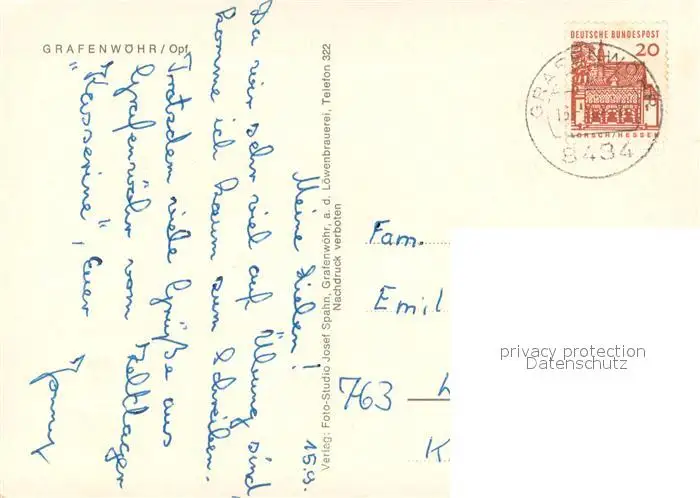 GRAFENWÖHR/Opf.
15.9.
Meine Lieben!
Da wir sehr viel auf Übung sind
komme ich kaum zum schreiben.
Trotzdem viele Grüße aus
Grafenwöhr vom Zeltlager
"Kasserine", Euer
Verlag: Foto-Studio Josef Spahn, Grafenwöhr, a. d. Löwenbrauerei, Telefon 322
Nachdruck verboten
DEUTSCHE BUNDESPOST
20
LORSCH/HESSEN
GRAFENWÖHR
8484
Fam.
Emil
763
K
privacy protection
Datenschutz